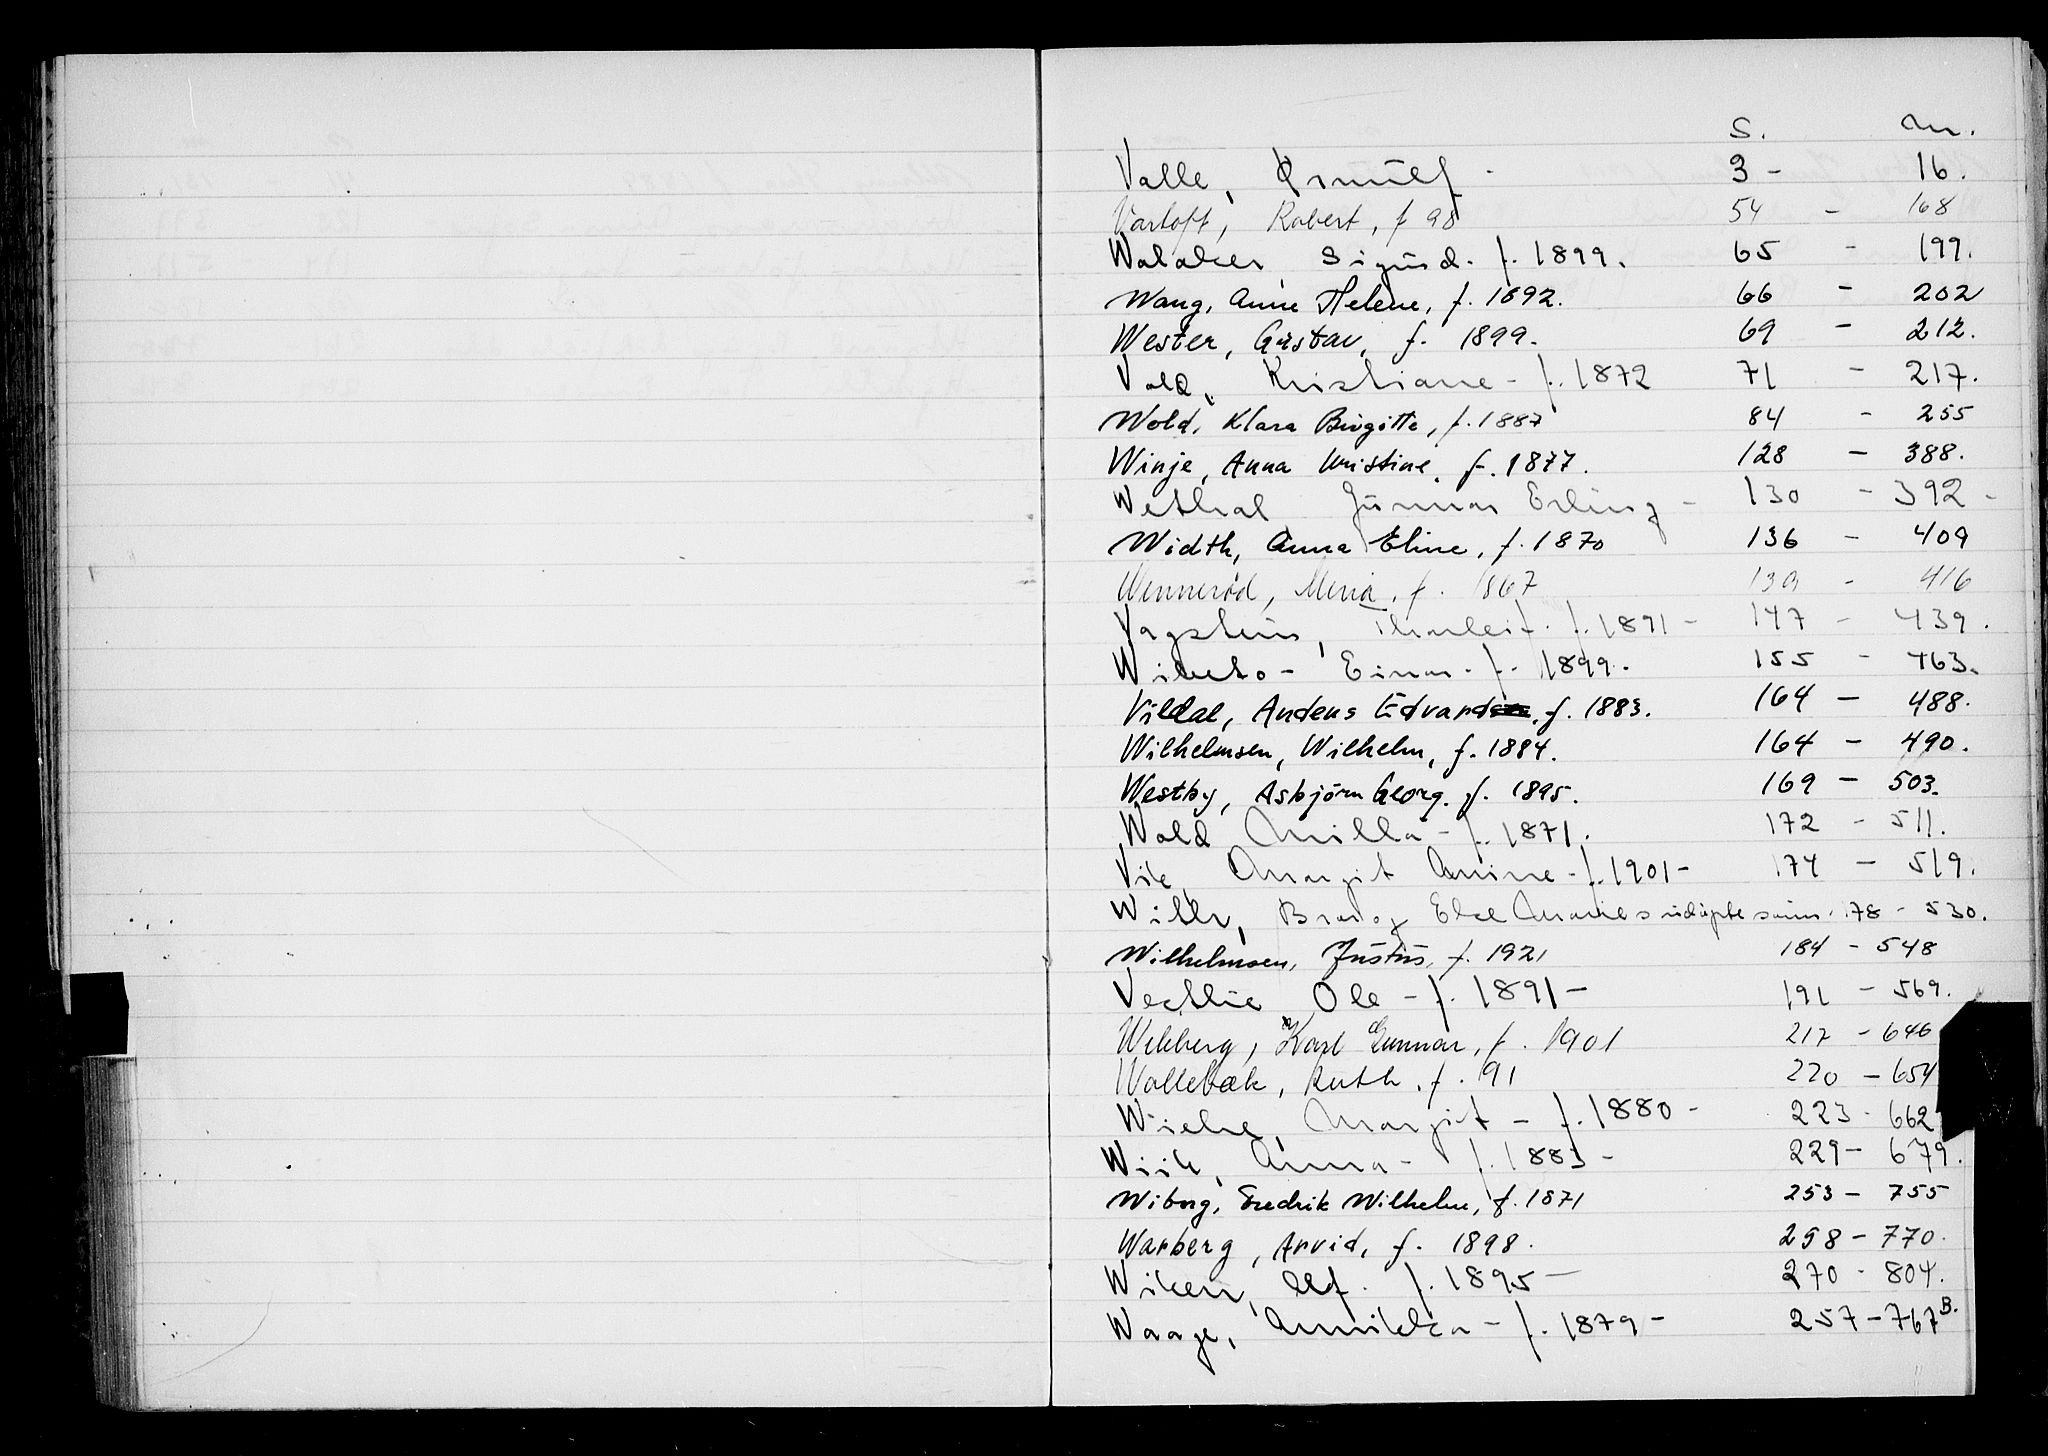 S. Nr.
Valle, 3 - 16.
Vartoft, Robert, f 98 54 - 168
Walaker Sigurd. f. 1899. 65 - 199.
Wang, Anne Helene, f. 1892. 66 - 202
Wester, Gustav, f. 1899. 69 - 212.
Vold, Kristiane - f. 1872 71 - 217.
Wold, Klara Birgitte, f. 1887 84 - 255
Winje, Anna Kristine, f. 1877. 128 - 388.
Wethal Gunnar Erling - 130 - 392 -
Width, Anna Eline, f. 1870 136 - 409
Wennerød, f. 1867 139 - 416
Vagstein, Thorleif. f. 1891 - 147 - 439.
Einar - f. 1899. 155 - 463.
Vildal, Anders Edvard, f. 1883. 164 - 488.
Wilhelmsen, Wilhelm, f. 1884. 164 - 490.
Westby, Asbjörn Georg. f. 1895. 169 - 503.
Wold Milla - f. 1871. 172 - 511.
Vik, Margit Annine - f. 1901 - 174 - 519.
Br. og Else Maries 178 - 530.
Wilhelmsen, Justus, f. 1921 184 - 548
Vestlie Ole - f. 1891 - 191 - 569.
Wekberg, Karl Gunnar, f. 1901 217 - 646
Wollebæk, Ruth, f. 91 220 - 654
Wiehe, Margit - f. 1880 - 223 - 662
Wiik, Anna - f. 1883 - 229 - 679.
Wiborg, Fredrik Wilhelm, f. 1871 253 - 755
Warberg, Arvid, f. 1898. 258 - 770.
Wiken, Ulf. f. 1895 - 270 - 804.
Waage, Annikken - f. 1879 - 257 - 767 B.